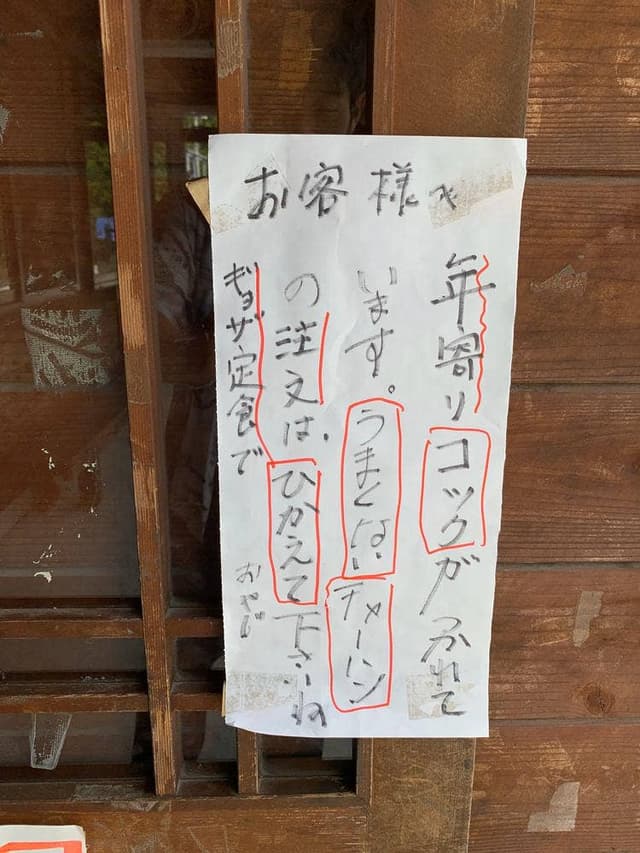 お客様へ
年寄りコックがつかれて
います。うまくないチャーハン
の注文は、ひかえて下さいね
ギョーザ定食で
おやじ